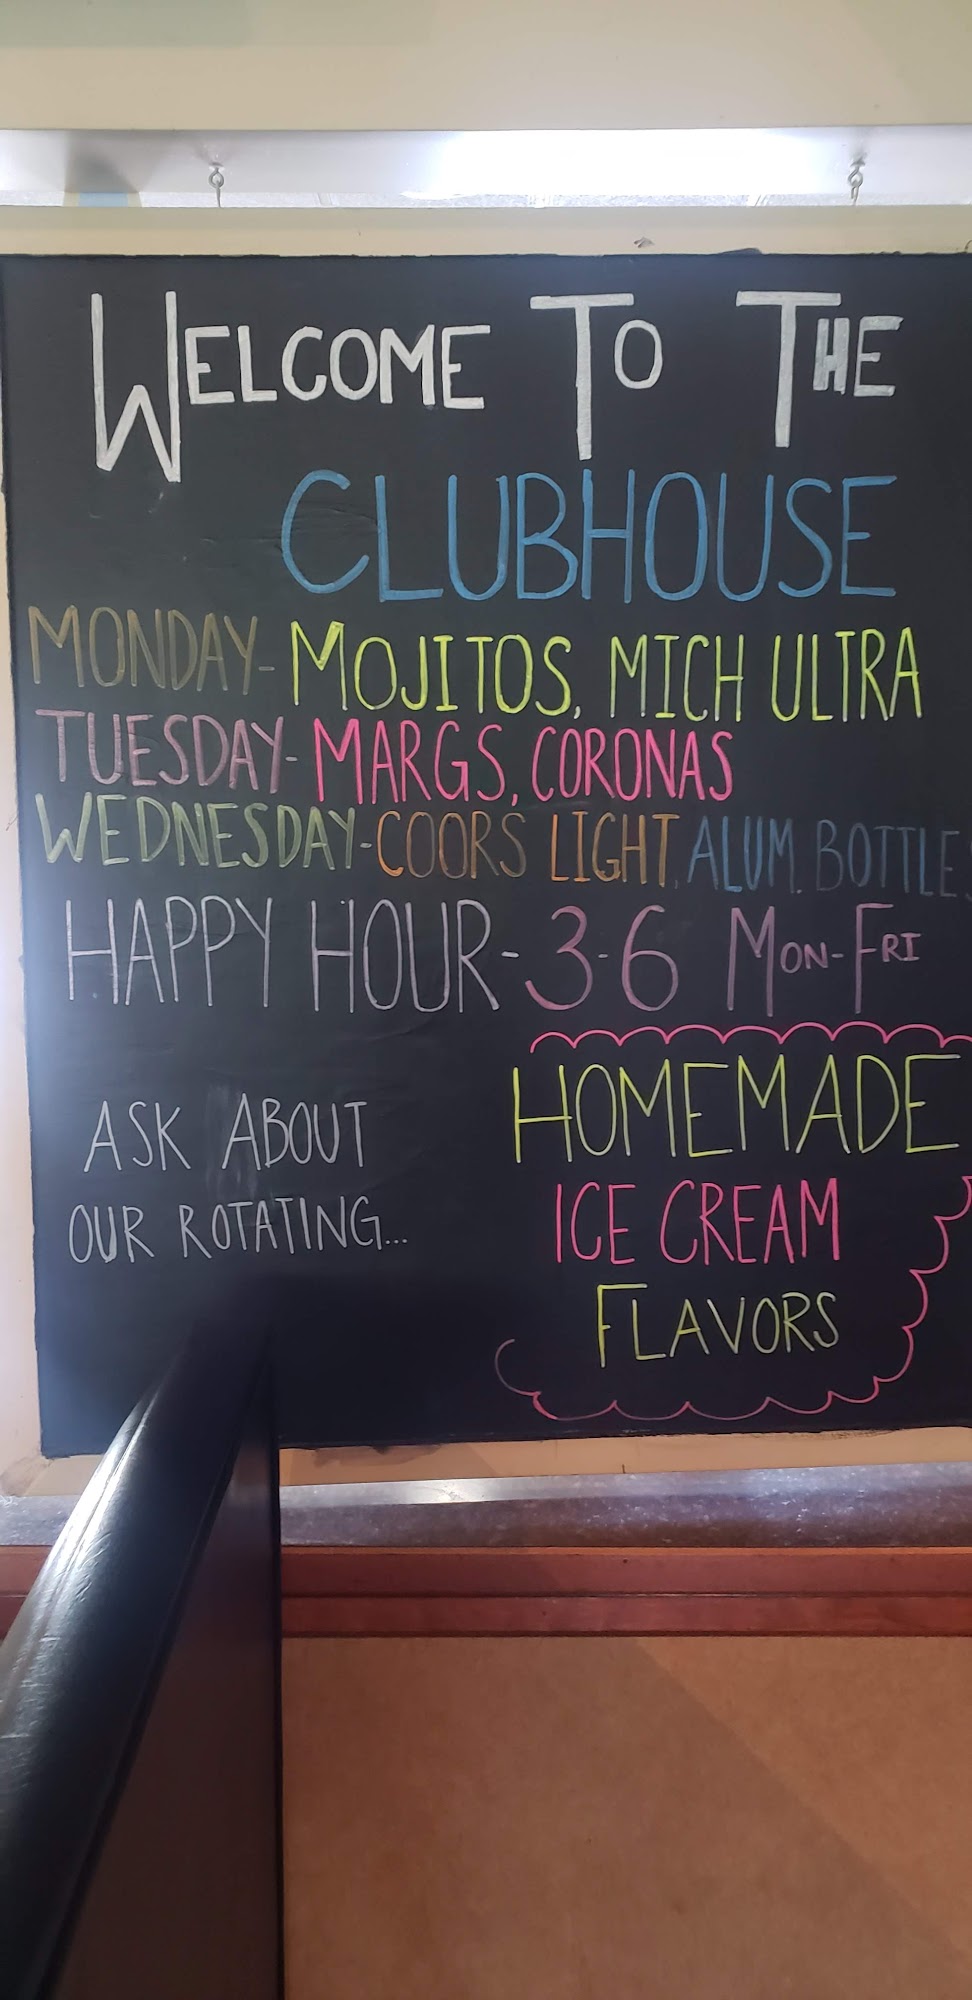 WELCOME TO THE
CLUBHOUSE
MONDAY- MOJITOS, MICH ULTRA
TUESDAY- MARGS, CORONAS
WEDNESDAY- COORS LIGHT, ALUM. BOTTLES
HAPPY HOUR- 3-6 MON-FRI
ASK ABOUT
OUR ROTATING...
HOMEMADE
ICE CREAM
FLAVORS